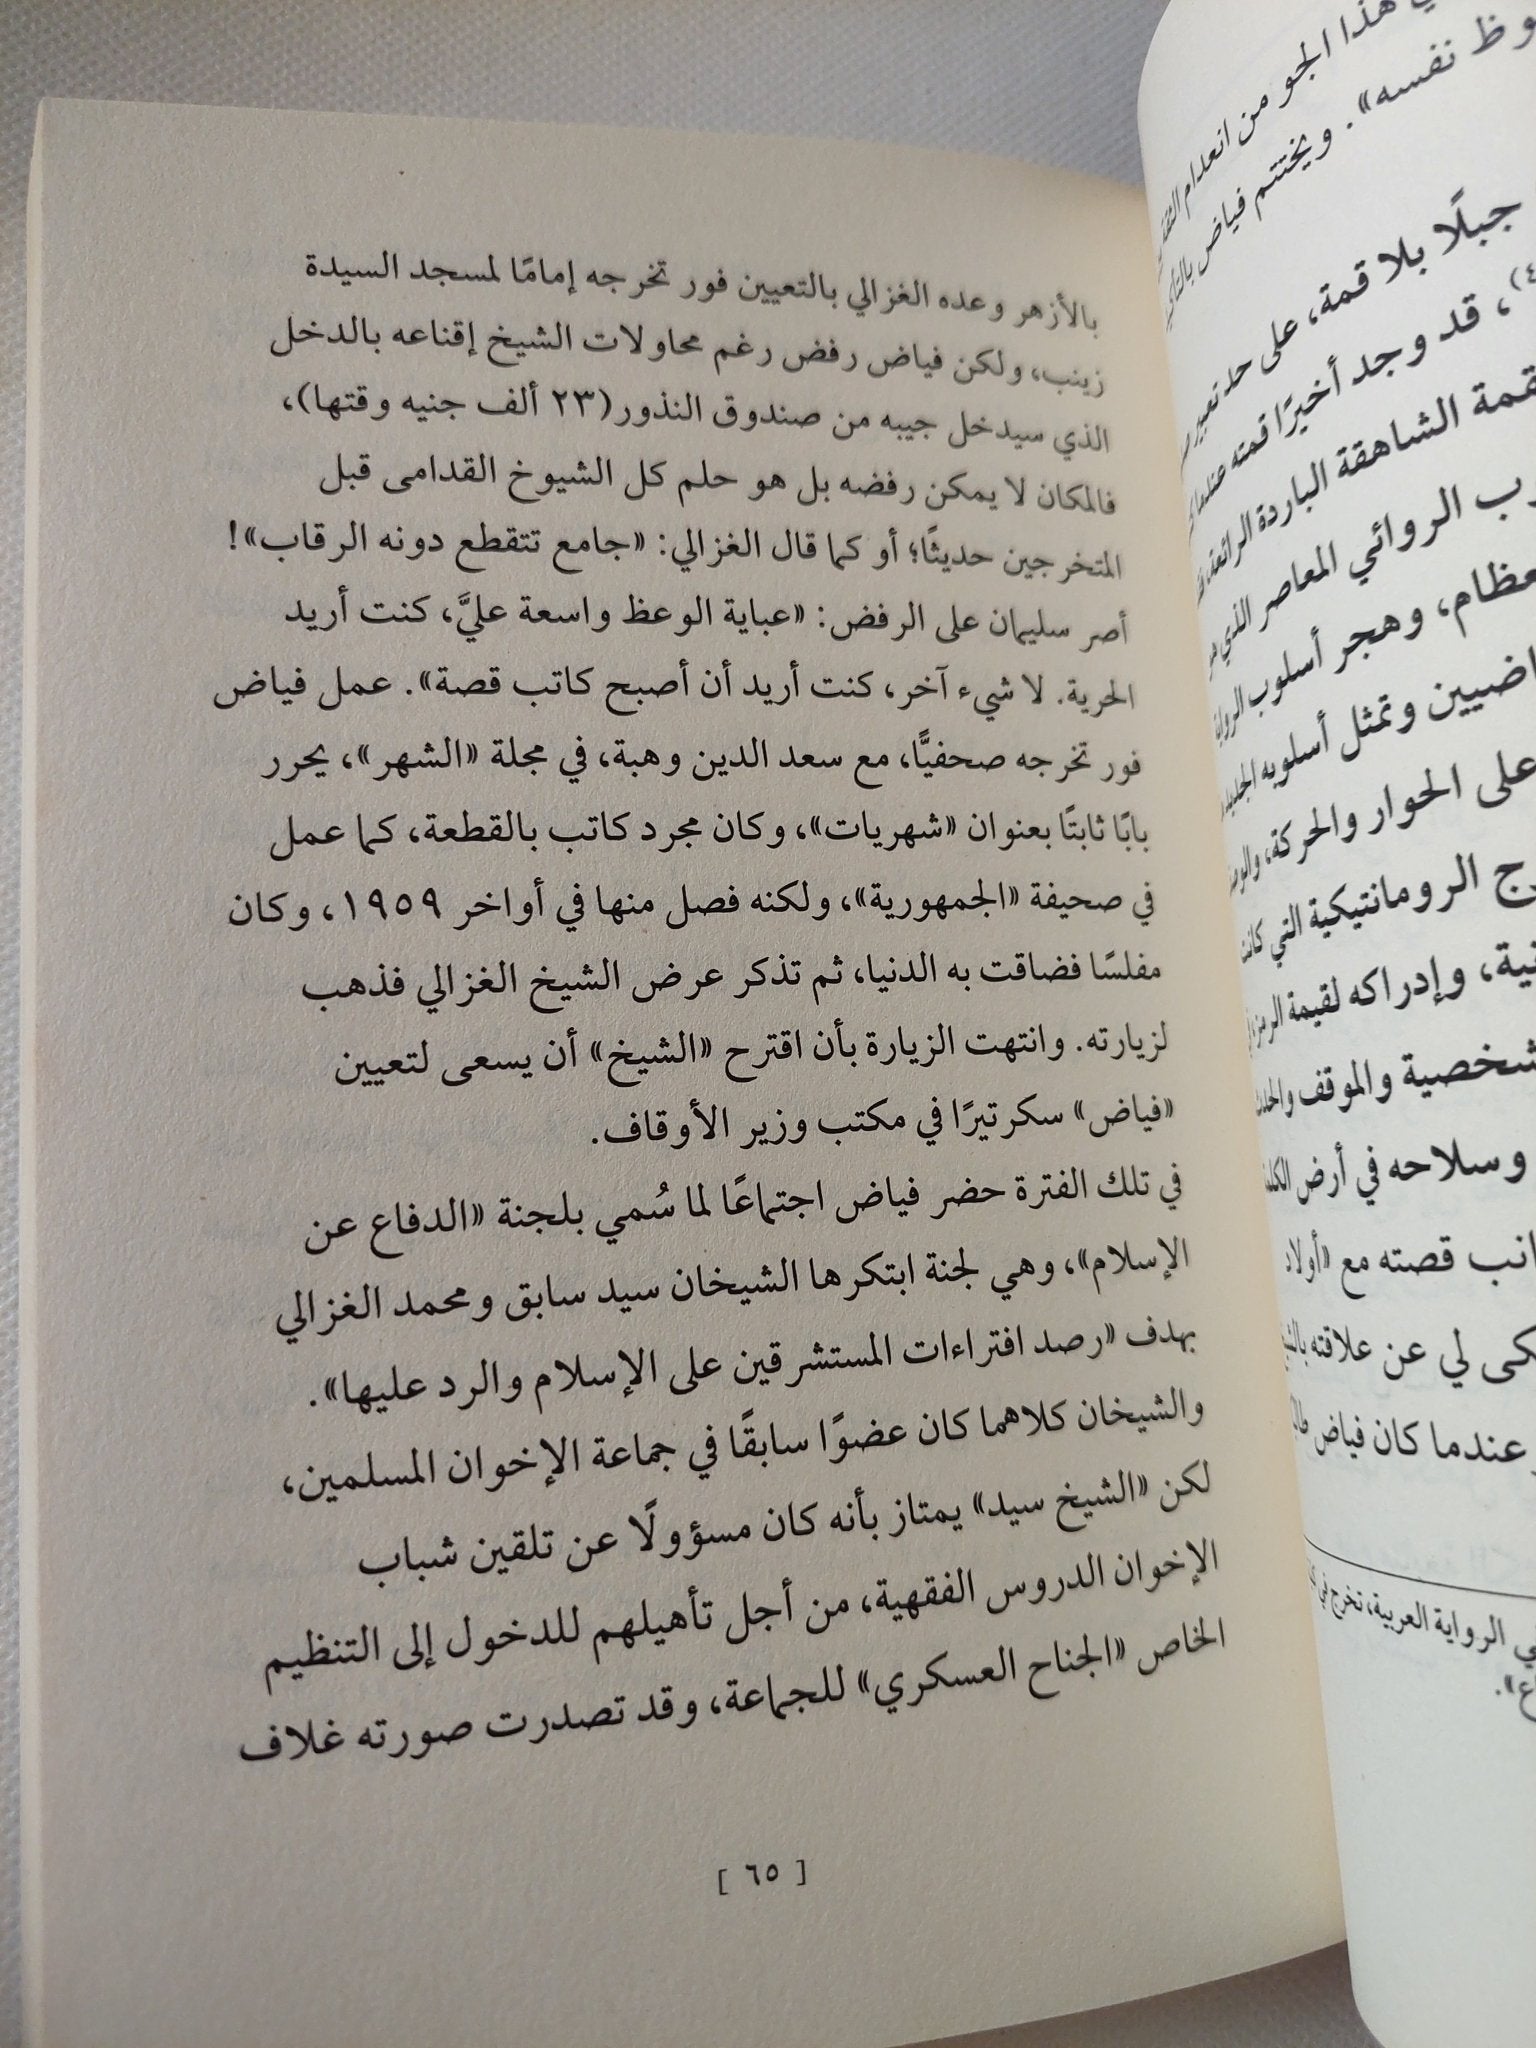 في هذا الجو من انعدام
نفسه». ويختتم فياض
جبلًا بلا قمة، على حد تعبير
قد وجد أخيرًا قمته عندما
الشاهقة الباردة الرائعة،
الروائي المعاصر الذي
وهجر أسلوب
وتمثل أسلوبه
على الحوار والحركة،
الرومانتيكية التي
وإدراكه لقيمة
والموقف
وسلاحه في أرض
قصته مع «أولاد
لي عن علاقته
عندما كان فياض
الرواية العربية، تخرج في
بالأزهر وعده الغزالي بالتعيين فور تخرجه إمامًا لمسجد السيدة
زينب، ولكن فياض رفض رغم محاولات الشيخ إقناعه بالدخل
الذي سيدخل جيبه من صندوق النذور(٢٣ ألف جنيه وقتها)،
فالمكان لا يمكن رفضه بل هو حلم كل الشيوخ القدامى قبل
المتخرجين حديثًا؛ أو كما قال الغزالي: «جامع تتقطع دونه الرقاب»!
أصر سليمان على الرفض: «عباية الوعظ واسعة عليَّ، كنت أريد
الحرية. لا شيء آخر، كنت أريد أن أصبح كاتب قصة». عمل فياض
فور تخرجه صحفيًّا، مع سعد الدين وهبة، في مجلة «الشهر»، يحرر
بابًا ثابتًا بعنوان «شهريات»، وكان مجرد كاتب بالقطعة، كما عمل
في صحيفة «الجمهورية»، ولكنه فصل منها في أواخر ١٩٥٩، وكان
مفلسًا فضاقت به الدنيا، ثم تذكر عرض الشيخ الغزالي فذهب
لزيارته. وانتهت الزيارة بأن اقترح «الشيخ» أن يسعى لتعيين
«فياض» سكرتيرًا في مكتب وزير الأوقاف.
في تلك الفترة حضر فياض اجتماعًا لما سُمي بلجنة «الدفاع عن
الإسلام»، وهي لجنة ابتكرها الشيخان سيد سابق ومحمد الغزالي
بهدف «رصد افتراءات المستشرقين على الإسلام والرد عليها».
والشيخان كلاهما كان عضوًا سابقًا في جماعة الإخوان المسلمين،
لكن «الشيخ سيد» يمتاز بأنه كان مسؤولًا عن تلقين شباب
الإخوان الدروس الفقهية، من أجل تأهيلهم للدخول إلى التنظيم
الخاص «الجناح العسكري» للجماعة، وقد تصدرت صورته غلاف
[ ٦٥ ]